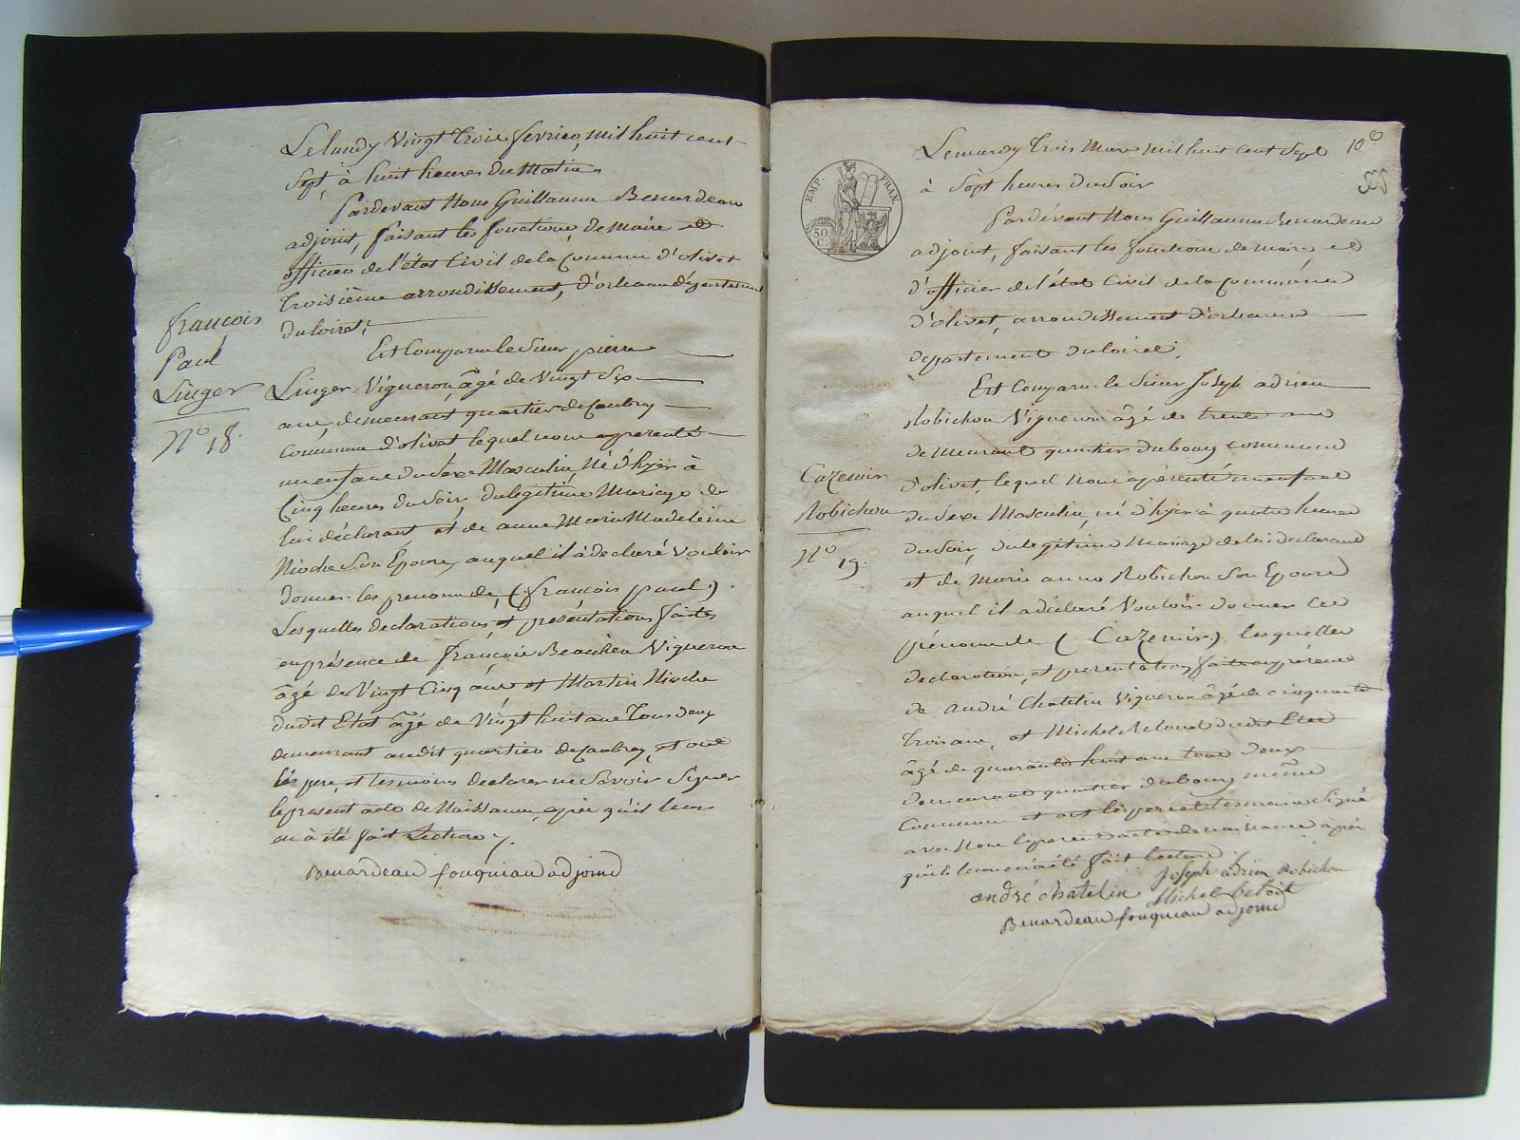 Le lundy Vingt trois fevrier, mil huit cent
Sept, à huit heures du Matin
Pardevant Nous Guillaume Benardeau
adjoint, faisant les fonctions de Maire et
officier de l'état Civil de la Commune d'olivet
troisième arrondissement, d'orleans département
du loiret;
Est Comparu le Sieur pierre
Linger Vigneron, âgé de Vingt Six
ans, demeurant quartier de Caubray
Commune d'olivet lequel nous a presenté
un enfant du Sexe Masculin Né d'hyer à
Cinq heures du Soir, du legitime Mariage de
lui déclarant, et de anne Marie Madeleine
Nioche Son Epouse, auquel il à declaré Vouloir
donner les prenoms de, (françois paul).
Lesquelles declarations, et présentations faites
en présence de françois Beaulieu Vigneron
âgé de Vingt Cinq ans et Martin Nioche
dudit Etat âgé de Vingt huit ans Tous deux
demeurant audit quartier de Caubray, et ont
les pere, et temoins declarer ne Savoir Signer
le present acte de Naissance, après qu'il leur
en à été fait Lecture.
Benardeau fouquiau adjoind
françois
Paul
Linger
N° 18.
EMP. FRAN.
50 C.
Le mardy trois Mars mil huit cent Sept 10
à Sept heures du Soir
Pardevant Nous Guillaume Benardeau
adjoint, faisant les fonctions de maire, et
d'officier de l'état Civil de la Commune
d'olivet, arrondissement d'orleans
departement du loiret.
Est Comparu le Sieur Joseph adrien
Robichon Vigneron âgé de trente ans
demeurant quartier du bourg commune
d'olivet, lequel nous à présenté un enfant
du Sexe Masculin, né d'hyer à quatre heures
du Soir, du legitime Mariage de lui declarant
et de Marie anne Robichon Son Epouse
auquel il a déclaré Vouloir donner les
prénoms de (Cazemir), lesquelles
declaration, et presentation faites en présence
de André Chatelin Vigneron âgé de cinquante
trois ans, et Michel Deloind dudit Etat
âgé de quarante huit ans tous deux
demeurant quartier du bourg même
Commune et ont les pere et temoins Signé
avec Nous le present acte de naissance après
qu'il leur en à été fait lecture.
Joseph adrien Robichon
andré chatelin Michel
Benardeau fouquiau adjoind
Cazemir
Robichon
N° 19.